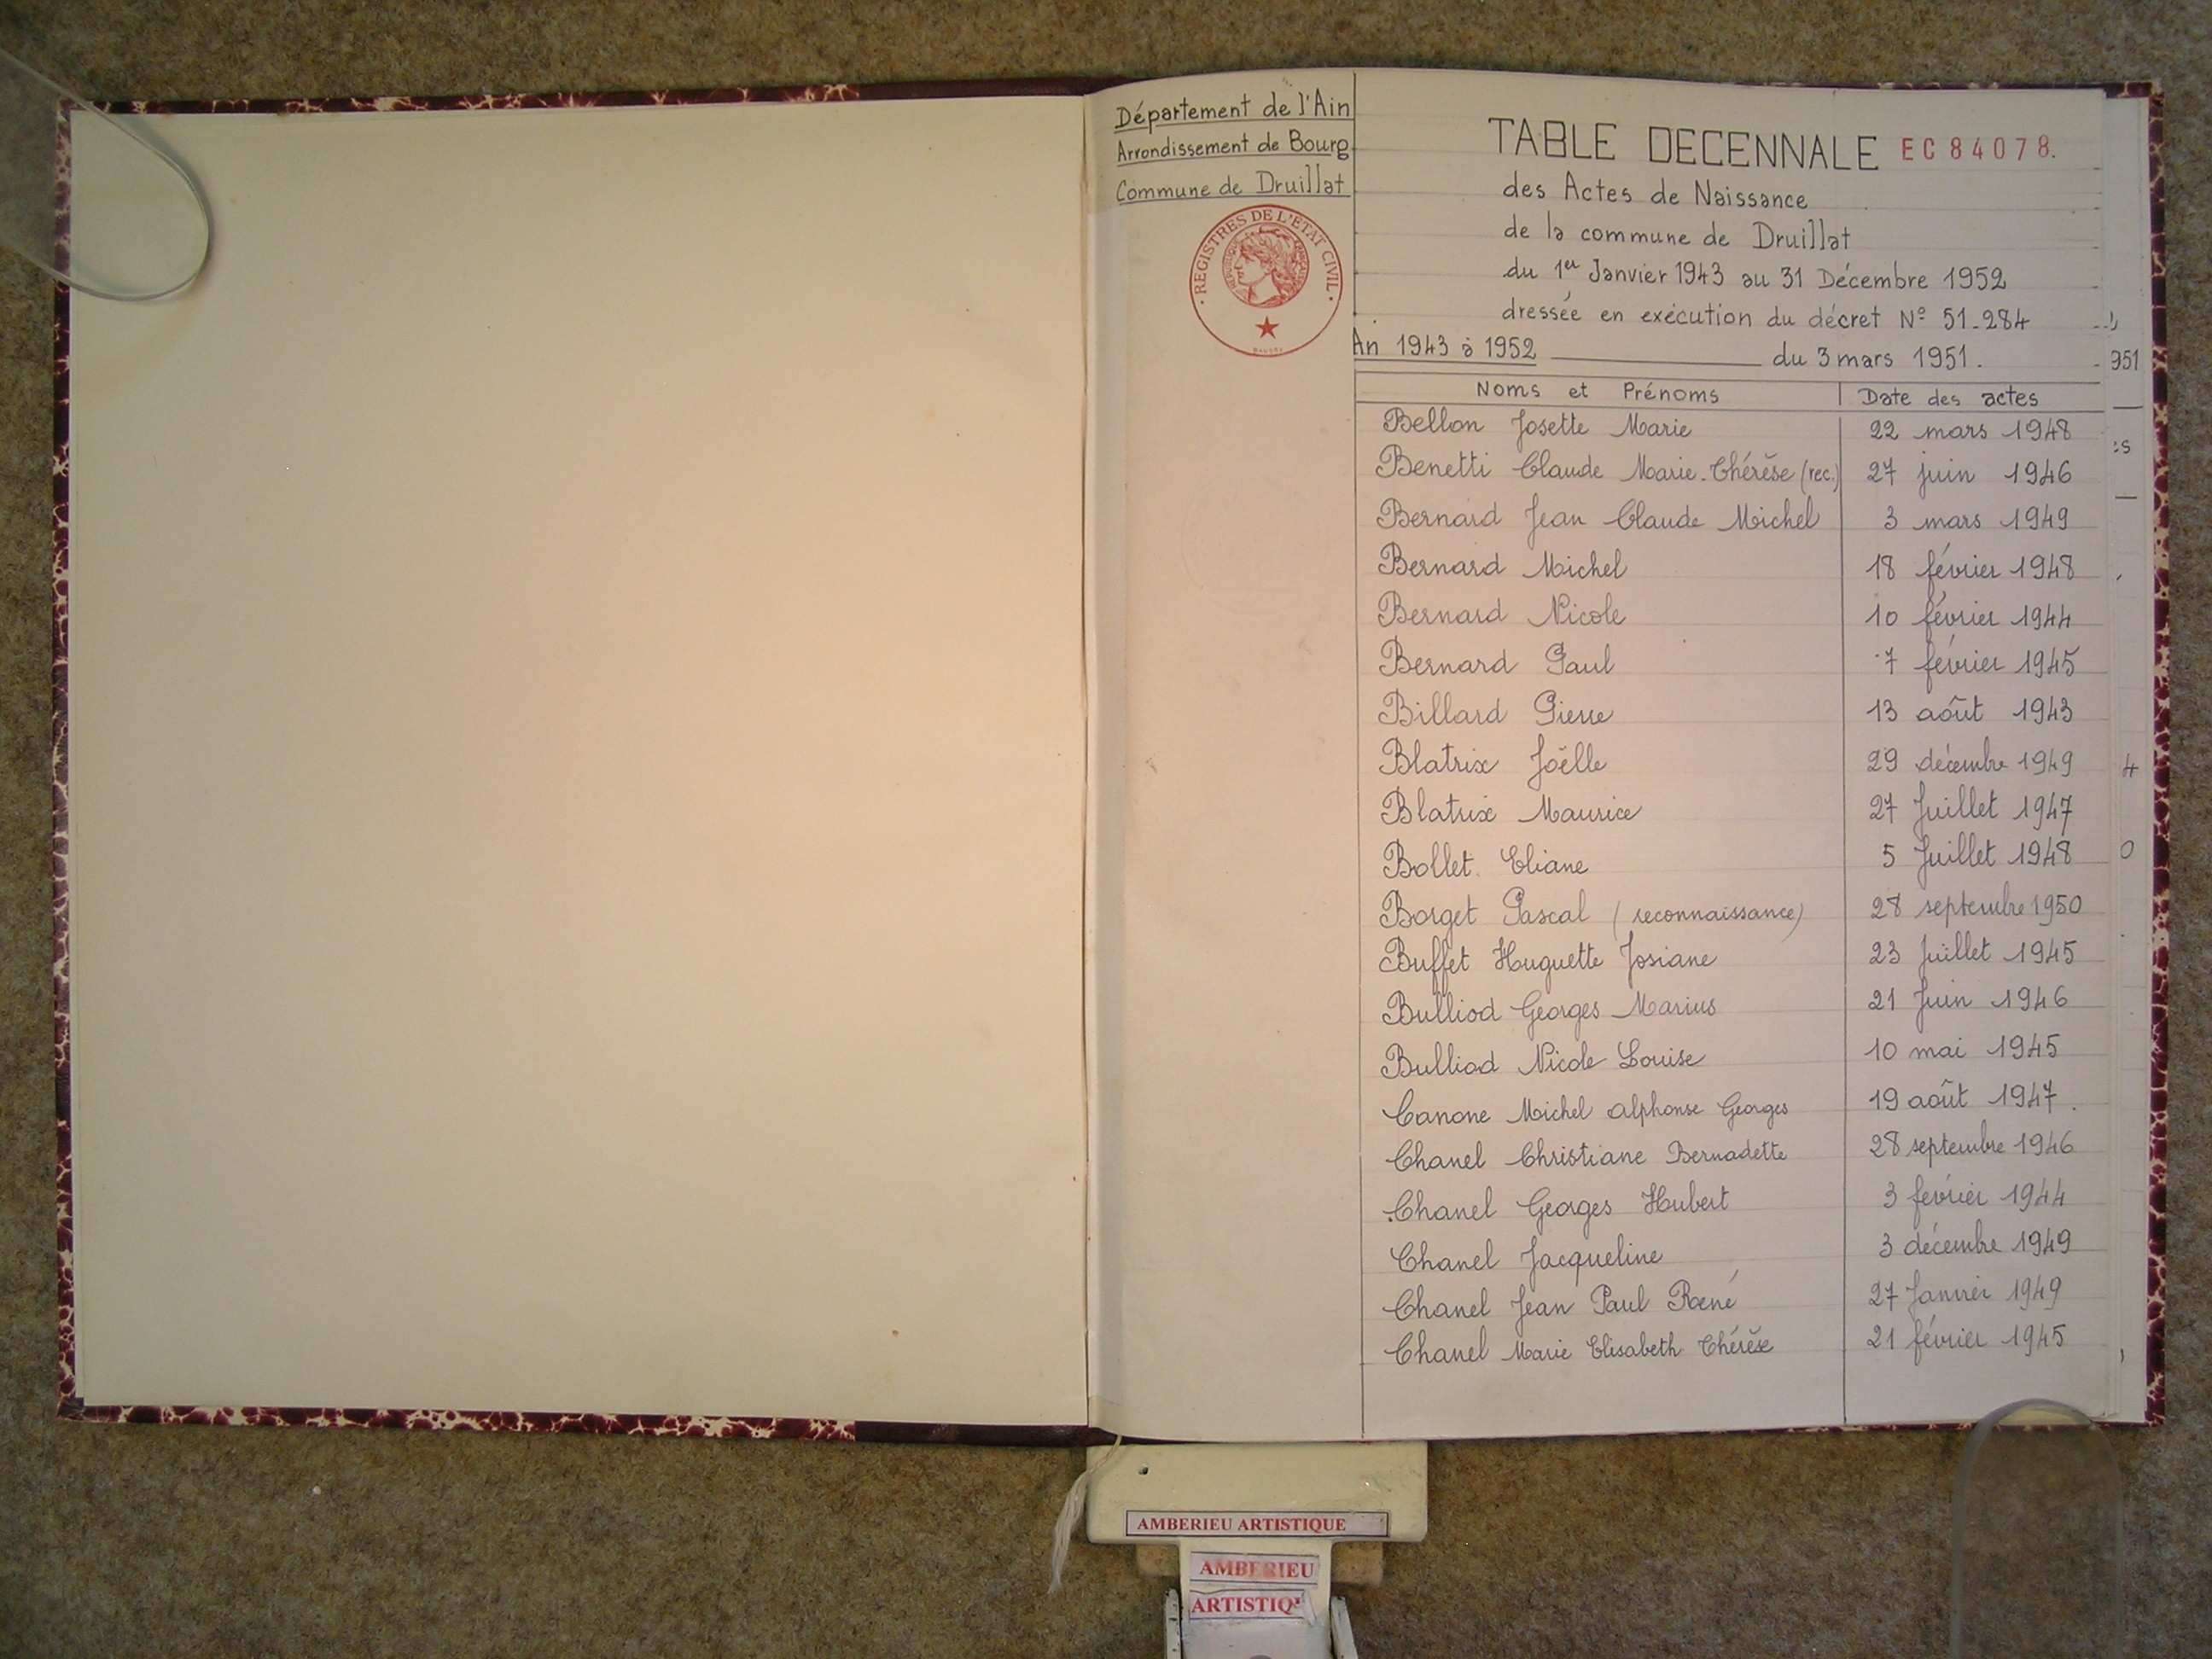 Département de l'Ain
Arrondissement de Bourg
Commune de Druillat
REGISTRES DE L'ETAT CIVIL
TABLE DECENNALE EC84078.
des Actes de Naissance
de la commune de Druillat
du 1er Janvier 1943 au 31 Décembre 1952
dressée en exécution du décret N° 51-284
An 1943 à 1952 du 3 mars 1951.
951
Noms et Prénoms Date des actes
Bellon Josette Marie 22 mars 1948
Benetti Claude Marie-Thérèse (rec.) 27 juin 1946
Bernard Jean Claude Michel 3 mars 1949
Bernard Michel 18 février 1948
Bernard Nicole 10 février 1944
Bernard Paul 7 février 1945
Billard Pierre 13 août 1943
Blatrix Joëlle 29 décembre 1949
Blatrix Maurice 27 Juillet 1947
Bollet Eliane 5 Juillet 1948
Borget Pascal (reconnaissance) 28 septembre 1950
Buffet Huguette Josiane 23 Juillet 1945
Bulliod Georges Marius 21 Juin 1946
Bulliod Nicole Louise 10 mai 1945
Canone Michel alphonse Georges 19 août 1947.
Chanel Christiane Bernadette 28 septembre 1946
Chanel Georges Hubert 3 février 1944
Chanel Jacqueline 3 décembre 1949
Chanel Jean Paul René 27 Janvier 1949
Chanel Marie Elisabeth Thérèse 21 février 1945
AMBERIEU ARTISTIQUE
AMBERIEU
ARTISTIQ